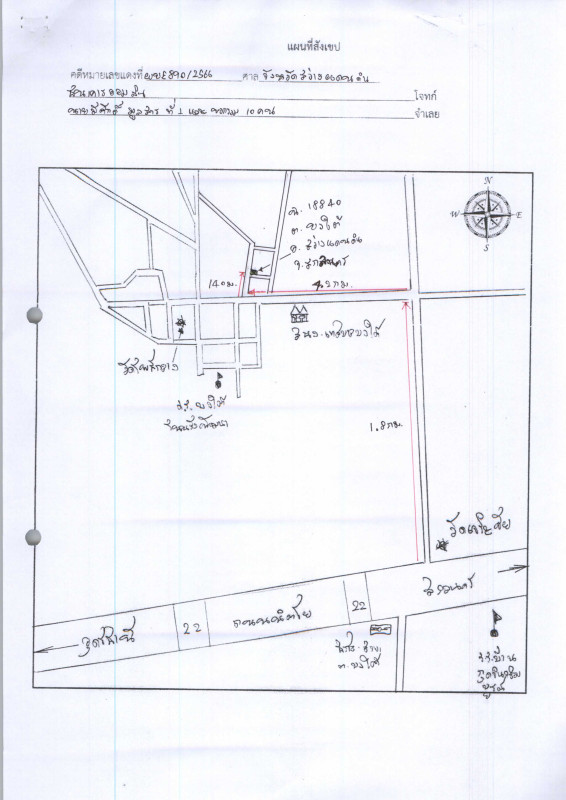 แผนที่สังเขป
คดีหมายเลขแดงที่ ผบE890/2566 ศาล จังหวัดสว่างแดนดิน
ธนาคารออมสิน โจทก์
ที่ 1 และ พวกรวม 10 คน จำเลย
น. 18840
ต. บงใต้
อ. สว่างแดนดิน
จ. สกลนคร
N
W
E
S
140 ม.
4.2 กม.
สนง. เทศบาลบงใต้
วัดโพธิ์กลาง
ร.ร. บงใต้
1.8 กม.
สกลนคร
22
ถนนนิตโย
22
อุดรธานี
ต. บงใต้
ร.ร. บ้าน